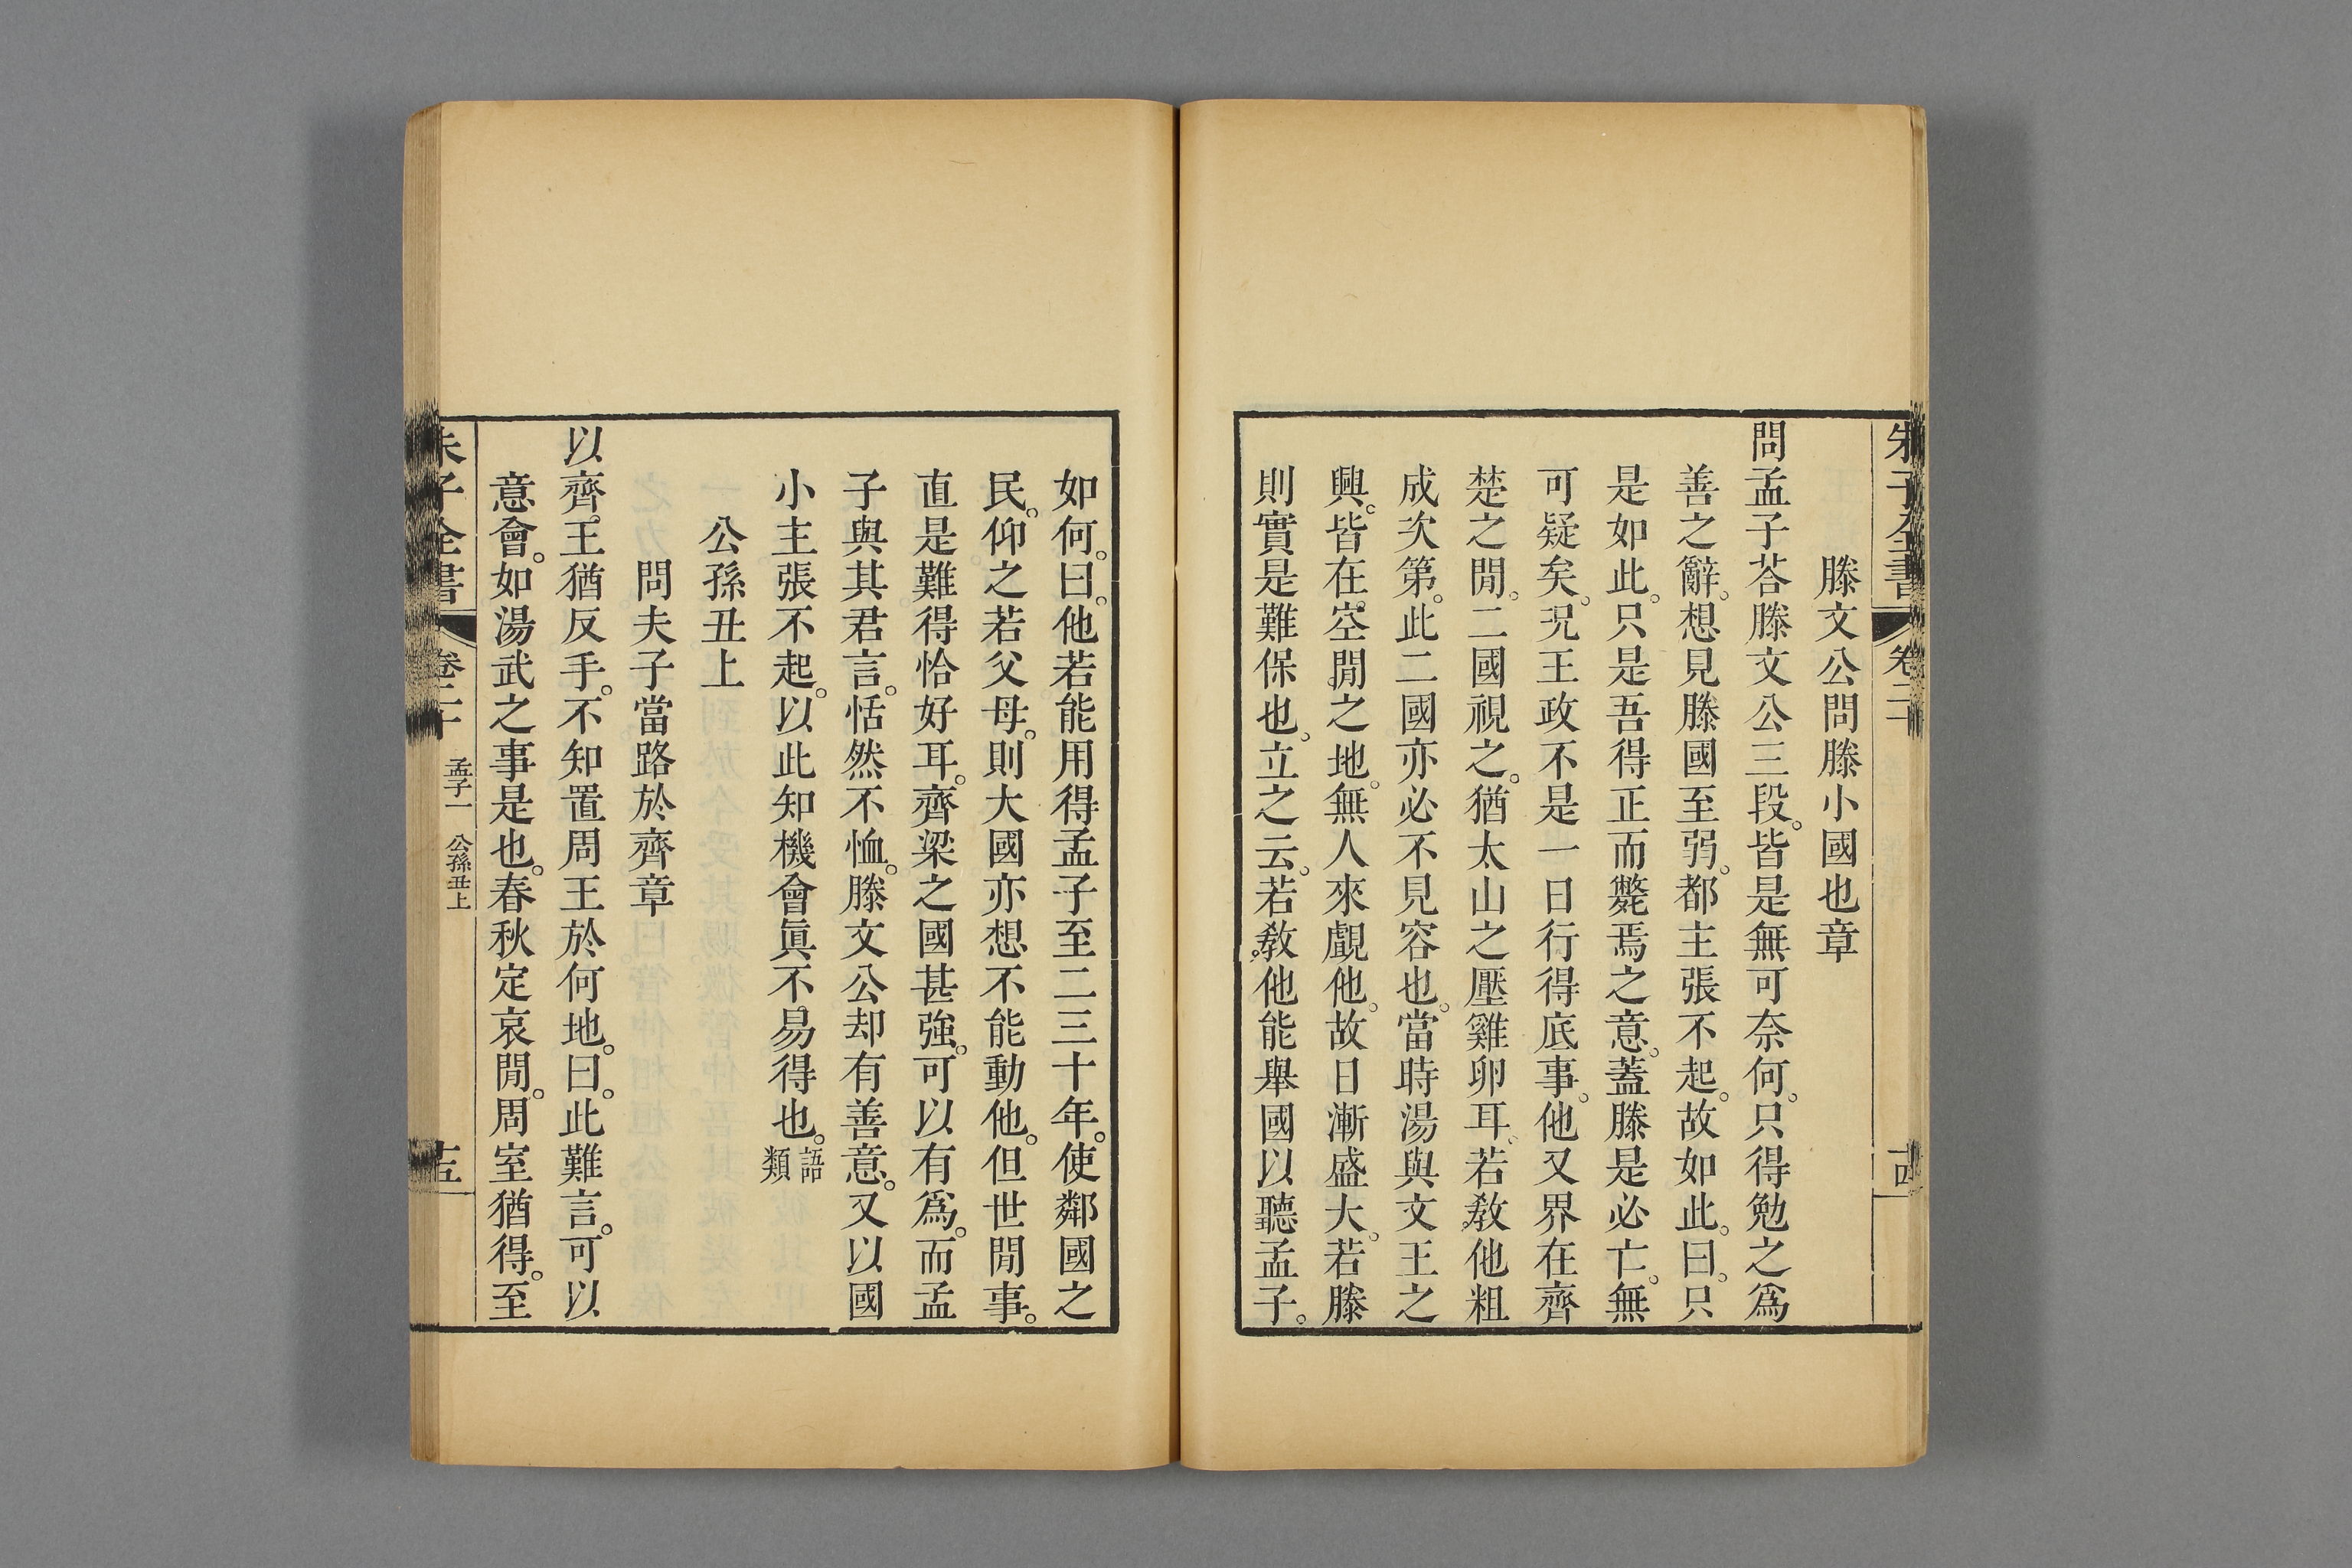 朱子全書
卷二十
十四
滕文公問滕小國也章
問孟子荅滕文公三段。皆是無可奈何。只得勉之爲
善之辭。想見滕國至弱。都主張不起。故如此。曰。只
是如此。只是吾得正而斃焉之意。蓋滕是必亡。無
可疑矣。况王政不是一日行得底事。他又界在齊
楚之閒。二國視之。猶太山之壓雞卵耳。若敎他粗
成次第。此二國亦必不見容也。當時湯與文王之
興。皆在空閒之地。無人來覰他。故日漸盛大。若滕
則實是難保也。立之云。若敎他能舉國以聽孟子。
如何。曰。他若能用得孟子至二三十年。使鄰國之
民。仰之若父母。則大國亦想不能動他。但世閒事。
直是難得恰好耳。齊梁之國甚強。可以有爲。而孟
子與其君言。恬然不恤。滕文公却有善意。又以國
小主張不起。以此知機會眞不易得也。語類
公孫丑上
問夫子當路於齊章
以齊王猶反手。不知置周王於何地。曰。此難言。可以
意會。如湯武之事是也。春秋定哀閒。周室猶得。至
朱子全書
卷二十
孟子一
公孫丑上
十五